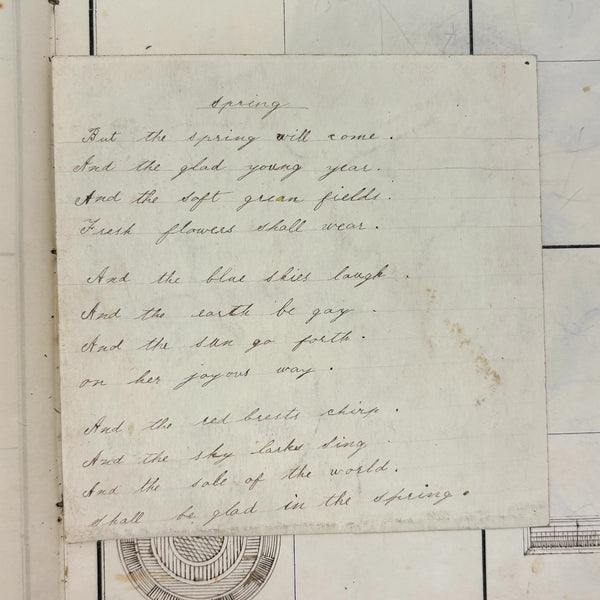 Spring
But the spring will come.
And the glad young year.
And the soft green fields.
Fresh flowers shall wear.
And the blue skies laugh.
And the earth be gay.
And the sun go forth.
on her joyous way.
And the red brests chirp.
And the sky larks sing
And the sole of the world.
shall be glad in the spring.